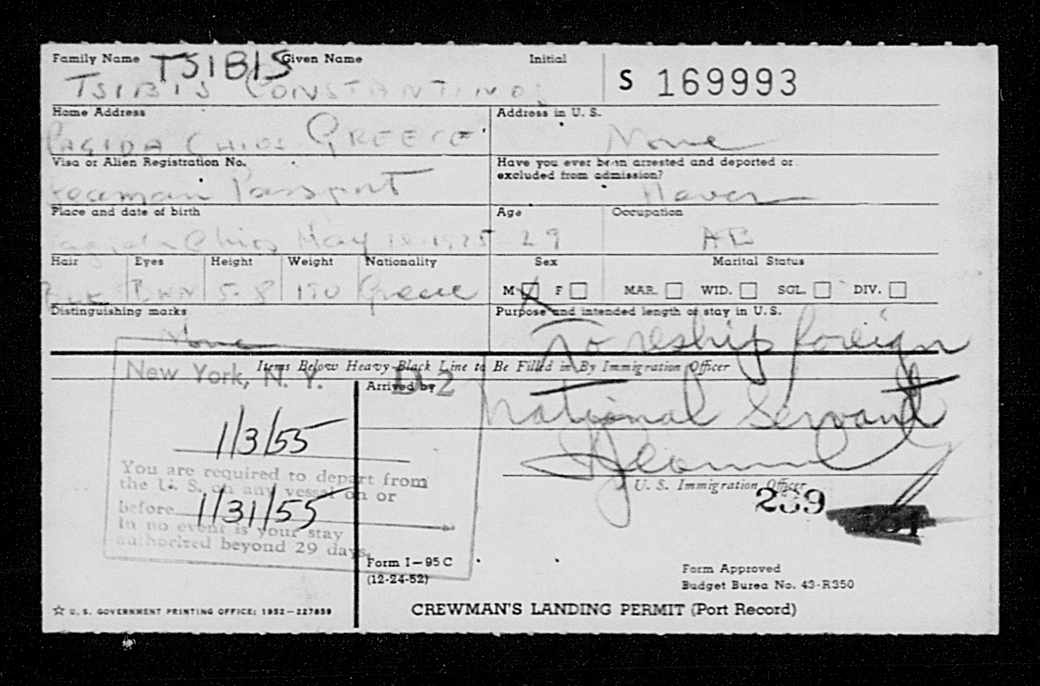 Family Name TSIBIS Given Name Initial
S 169993
TSIBIS CONSTANTINOS
Home Address Address in U. S.
PAGIDA CHIOS GREECE None
Visa or Alien Registration No. Have you ever been arrested and deported or
excluded from admission?
Seaman Passport Never
Place and date of birth Age Occupation
Pagida Chios May 1925 29 AB
Hair Eyes Height Weight Nationality Sex Marital Status
BLK BWN 5-8 170 Greece M F MAR. WID. SGL. DIV.
Distinguishing marks Purpose and intended length of stay in U.S.
None To reship foreign
Items Below Heavy Black Line to Be Filled in By Immigration Officer
New York, N. Y. Arrived by D-2
national Servant
1/3/55
You are required to depart from
the U. S. on any vessel on or
before 1/31/55
In no event is your stay
authorized beyond 29 days.
U. S. Immigration Officer
239
Form I-95C
(12-24-52)
Form Approved
Budget Bureau No. 43-R350
☆ U. S. GOVERNMENT PRINTING OFFICE: 1952-227859
CREWMAN'S LANDING PERMIT (Port Record)